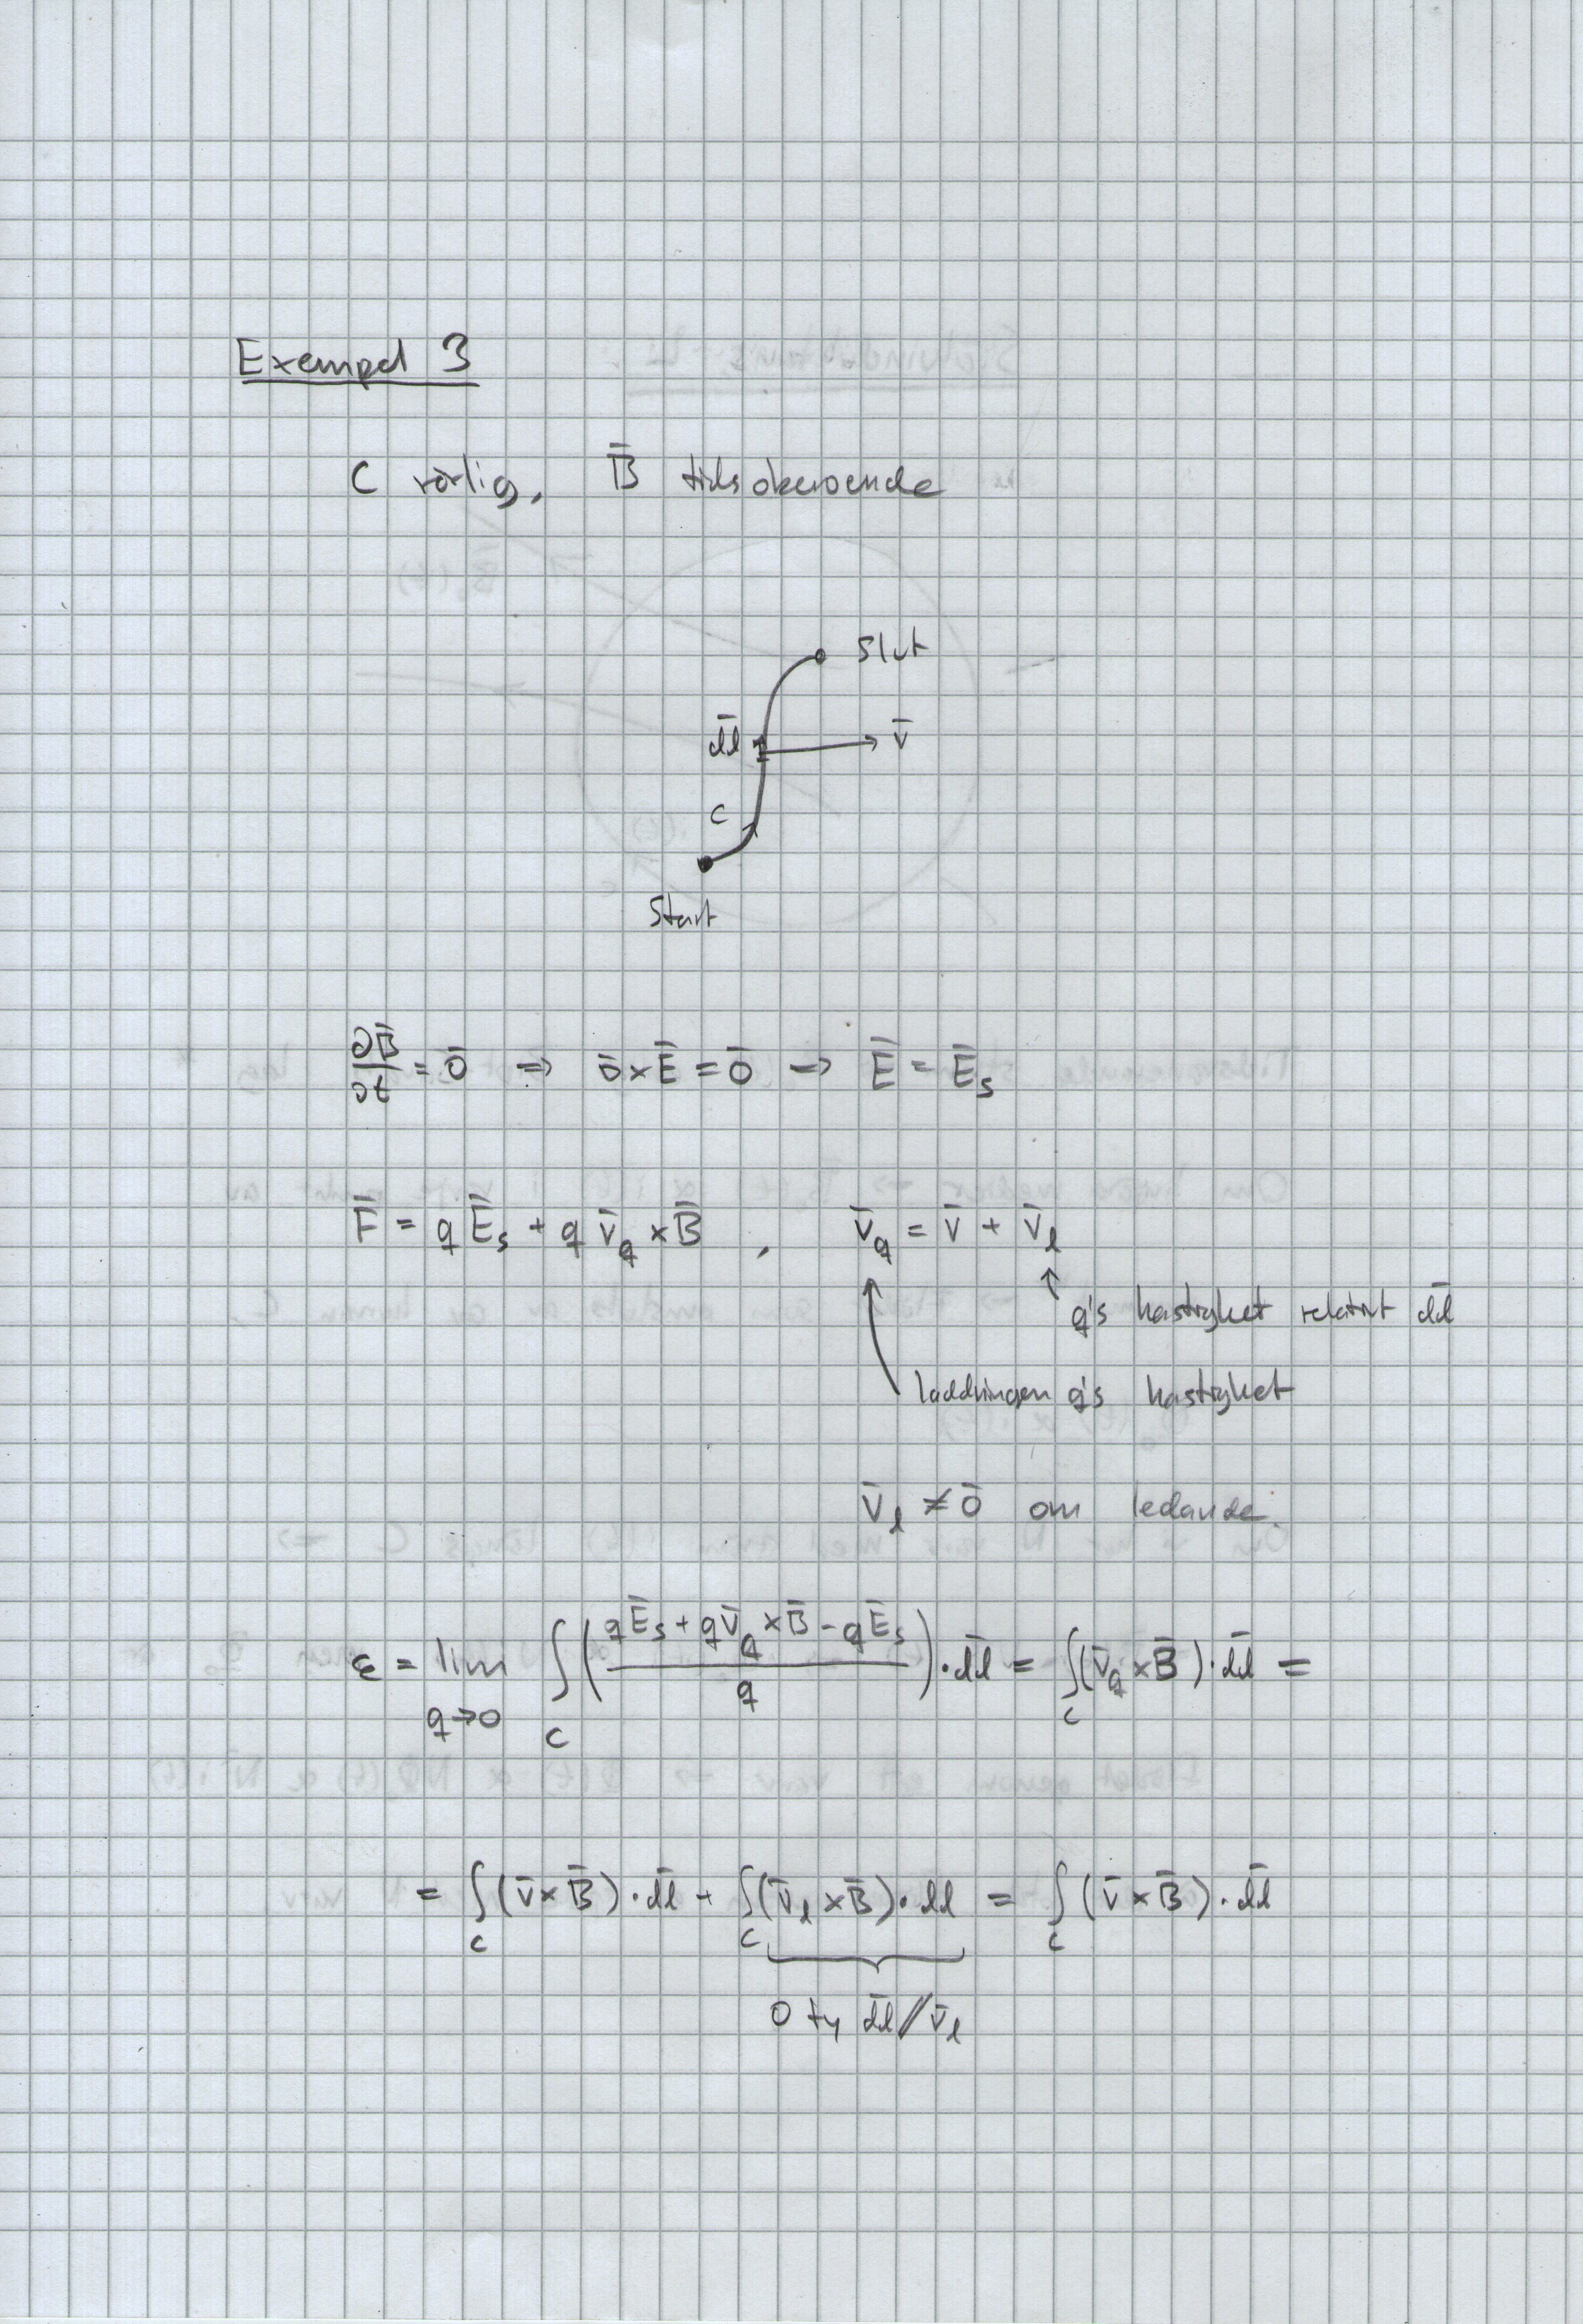 Exempel 3
C rörlig, B̄ tidsoberoende
Slut
d̄l v̄
C
Start
∂B̄/∂t = 0̄ ⇒ ∇̄×Ē = 0̄ ⇒ Ē = Ēs
F̄ = qĒs + q v̄q × B̄ , v̄q = v̄ + v̄l
q's hastighet relativt d̄l
laddningen q's hastighet
v̄l ≠ 0̄ om ledande.
ε = lim q→0 ∫C ( (qĒs + q v̄q × B̄ − qĒs) / q ) · d̄l = ∫C (v̄q × B̄) · d̄l =
= ∫C (v̄ × B̄) · d̄l + ∫C (v̄l × B̄) · d̄l = ∫C (v̄ × B̄) · d̄l
0 ty d̄l // v̄l